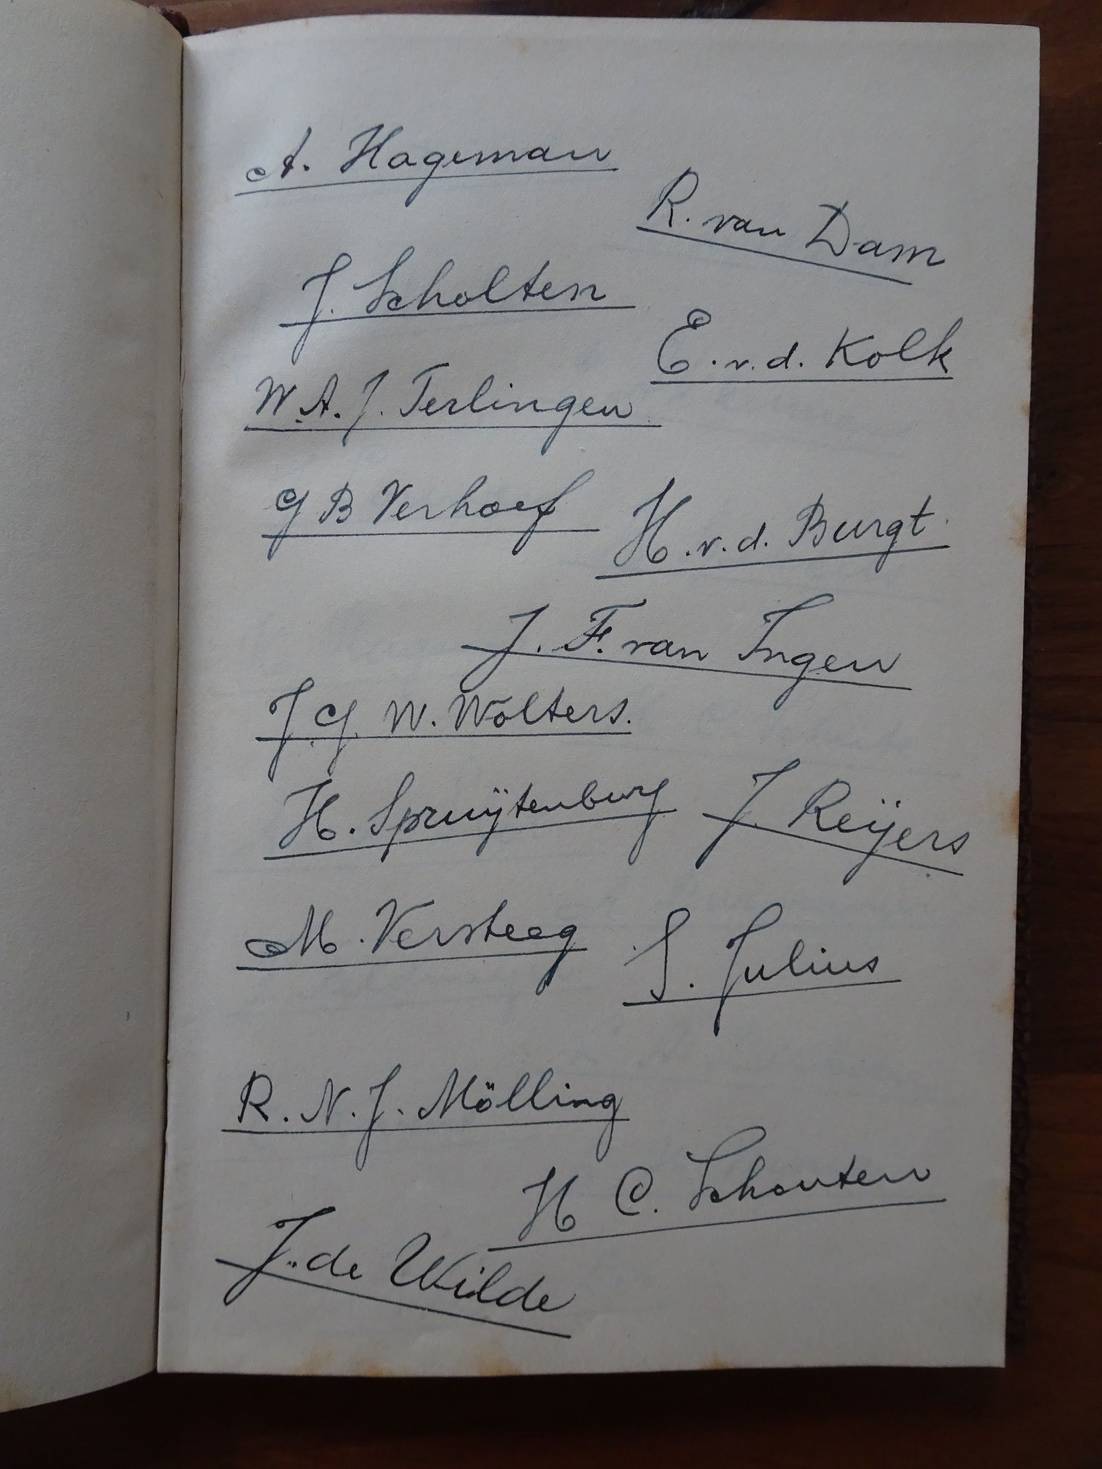 A. Hageman
R. van Dam
J. Scholten
E. v. d. Kolk
W. A. J. Terlingen
G B Verhoef
H. v. d. Burgt
J. F. van Ingen
J. G. W. Wolters.
H. Spruÿtenburg
J. Reÿers
M. Versteeg
S. Julius
R. N. J. Mölling
H C. Schouten
J. de Wilde